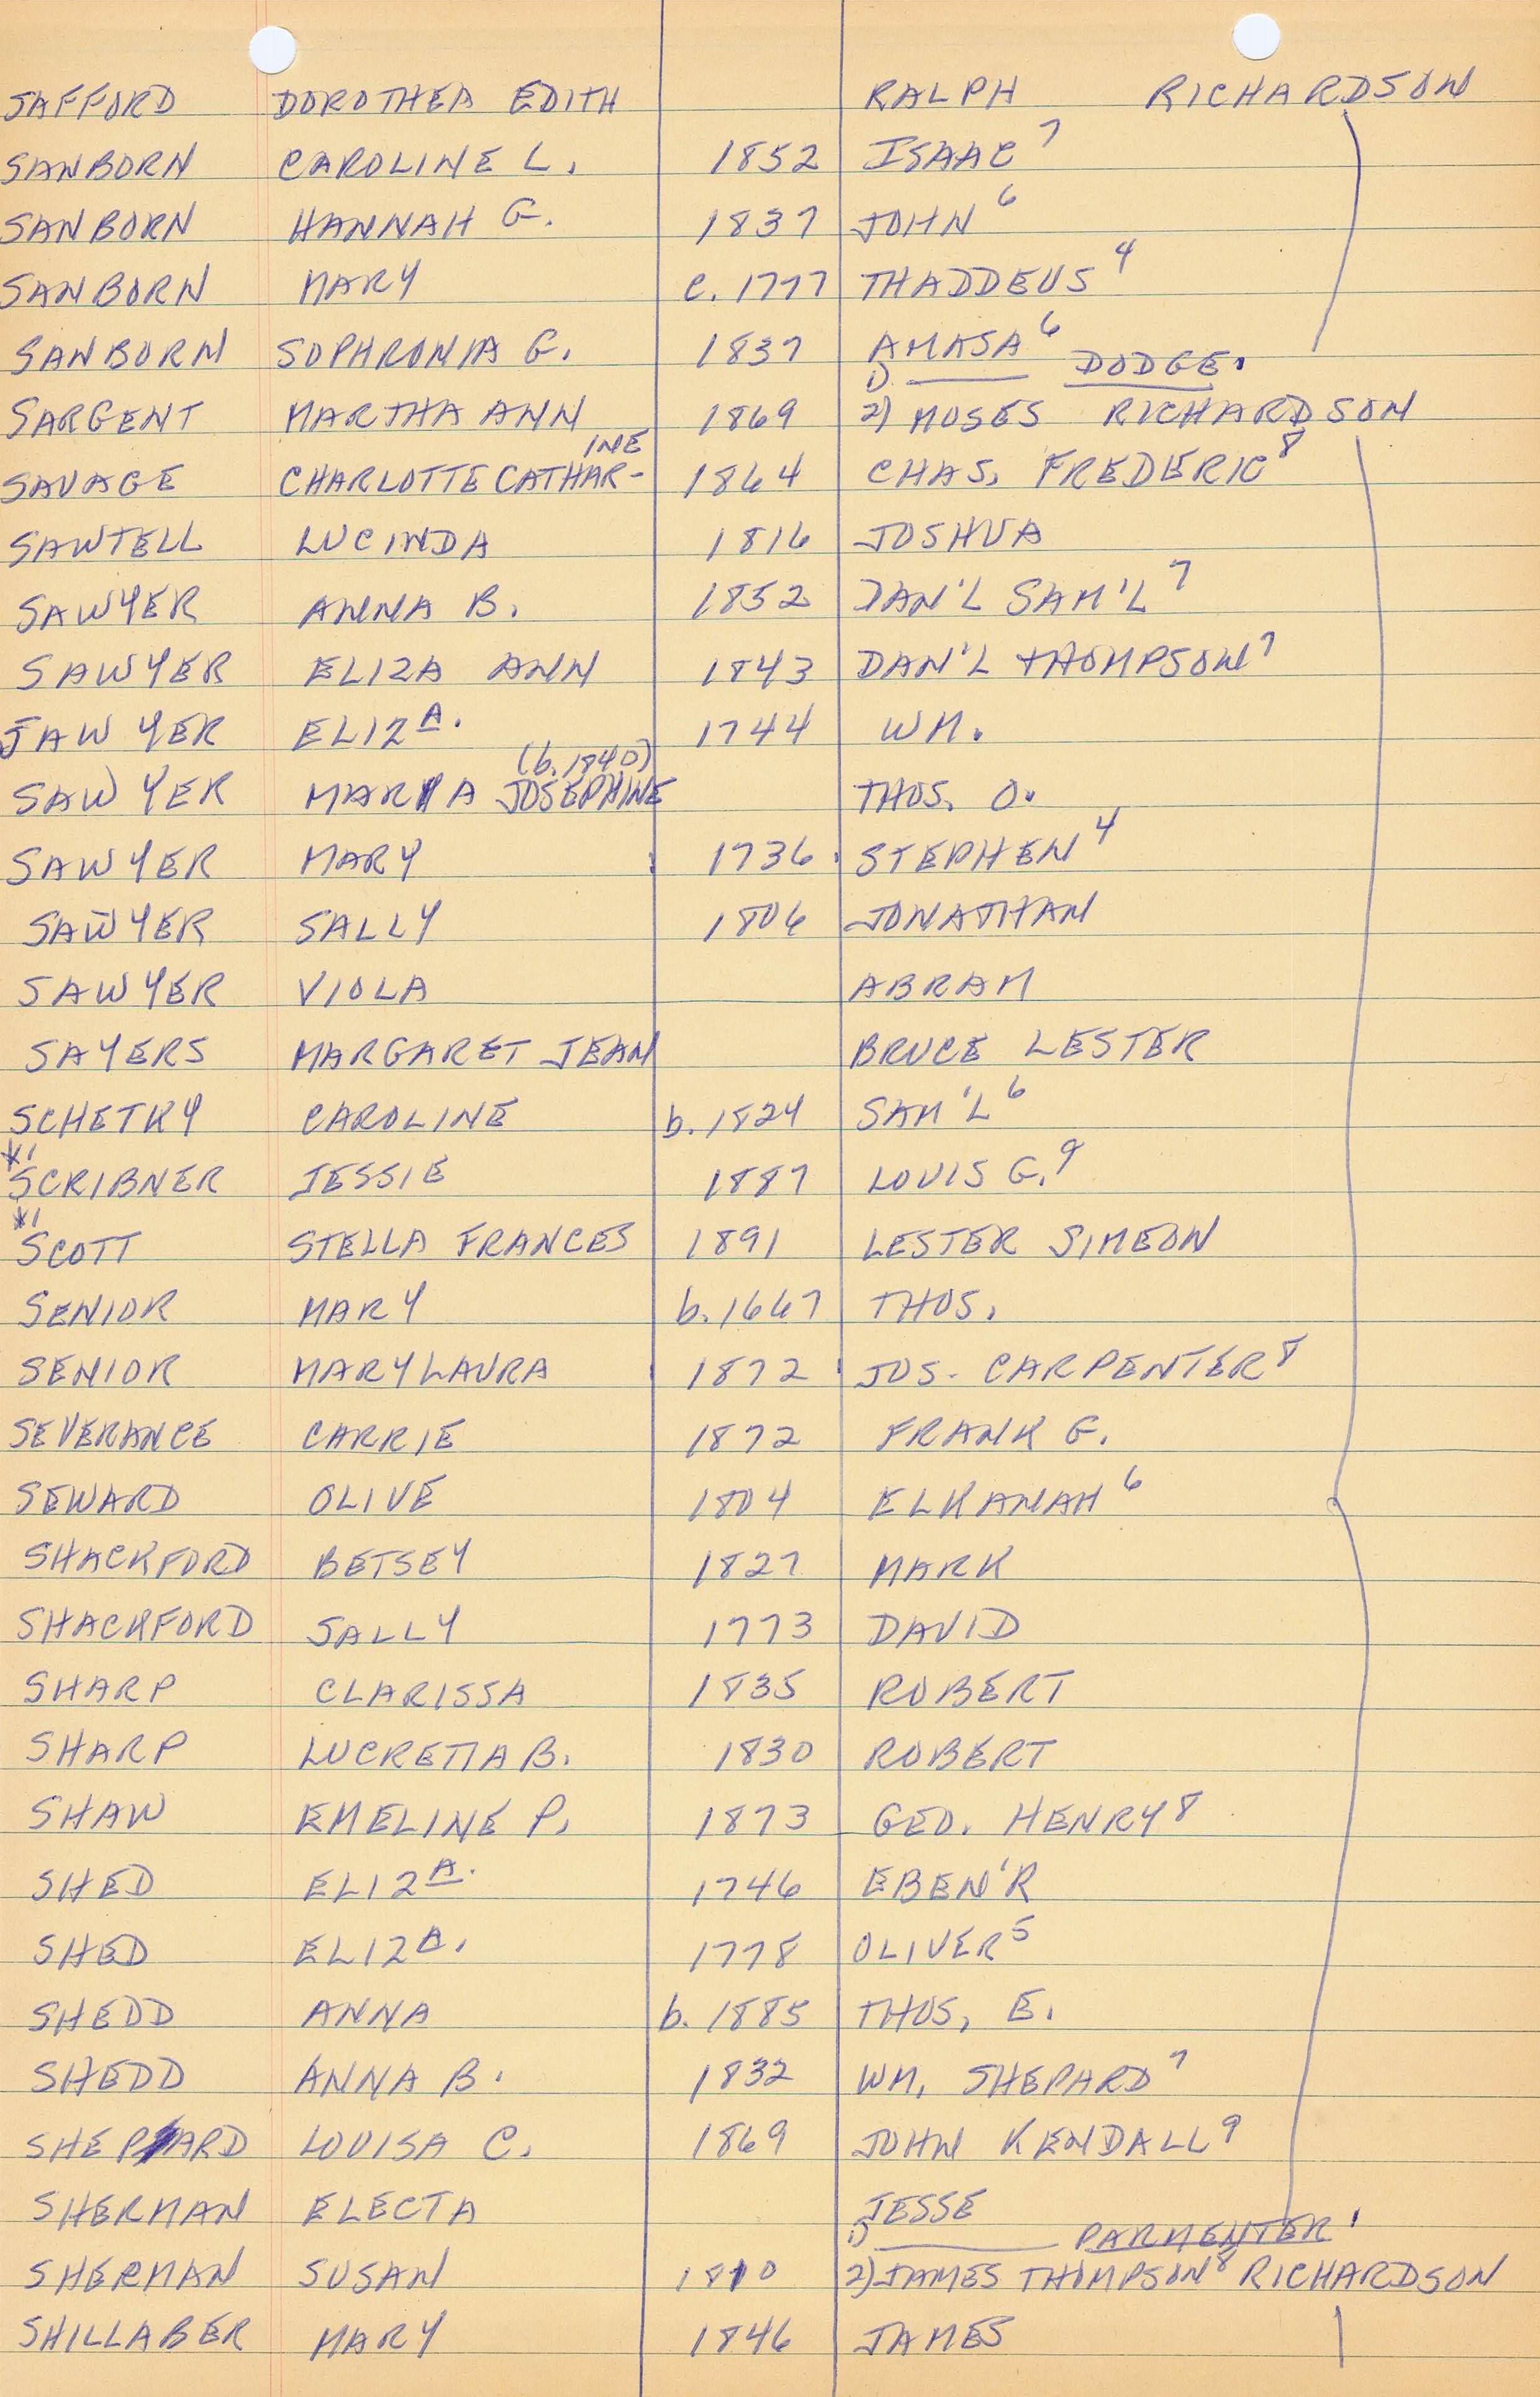 SAFFORD DOROTHEA EDITH RALPH RICHARDSON
SANBORN CAROLINE L. 1852 ISAAC 7
SANBORN HANNAH G. 1837 JOHN 6
SANBORN MARY c. 1777 THADDEUS 4
SANBORN SOPHRONIA G. 1837 AMASA 6
1) ______ DODGE.
SARGENT MARTHA ANN 1869 2) MOSES RICHARDSON
INE
SAVAGE CHARLOTTE CATHAR- 1864 CHAS. FREDERIC 8
SAWTELL LUCINDA 1816 JOSHUA
SAWYER ANNA B. 1852 DAN'L SAM'L 7
SAWYER ELIZA ANN 1843 DAN'L THOMPSON 7
SAWYER ELIZA. 1744 WM.
(b. 1840)
SAWYER MARIA JOSEPHINE THOS. O.
SAWYER MARY 1736 STEPHEN 4
SAWYER SALLY 1806 JONATHAN
SAWYER VIOLA ABRAM
SAYERS MARGARET JEAN BRUCE LESTER
SCHETKY CAROLINE b. 1824 SAM'L 6
*1
SCRIBNER JESSIE 1887 LOUIS G. 9
*1
SCOTT STELLA FRANCES 1891 LESTER SIMEON
SENIOR MARY b. 1667 THOS.
SENIOR MARY LAURA 1872 JOS. CARPENTER 8
SEVERANCE CARRIE 1872 FRANK G.
SEWARD OLIVE 1804 ELKANAH 6
SHACKFORD BETSEY 1827 MARK
SHACKFORD SALLY 1773 DAVID
SHARP CLARISSA 1835 ROBERT
SHARP LUCRETIA B. 1830 ROBERT
SHAW EMELINE P. 1873 GEO. HENRY 8
SHED ELIZA. 1746 EBEN'R
SHED ELIZA. 1778 OLIVER 5
SHEDD ANNA b. 1885 THOS. E.
SHEDD ANNA B. 1832 WM. SHEPARD 7
SHEPARD LOUISA C. 1869 JOHN KENDALL 9
SHERMAN ELECTA JESSE
1) ______ PARMENTER
SHERMAN SUSAN 1810 2) JAMES THOMPSON 8 RICHARDSON
SHILLABER MARY 1846 JAMES